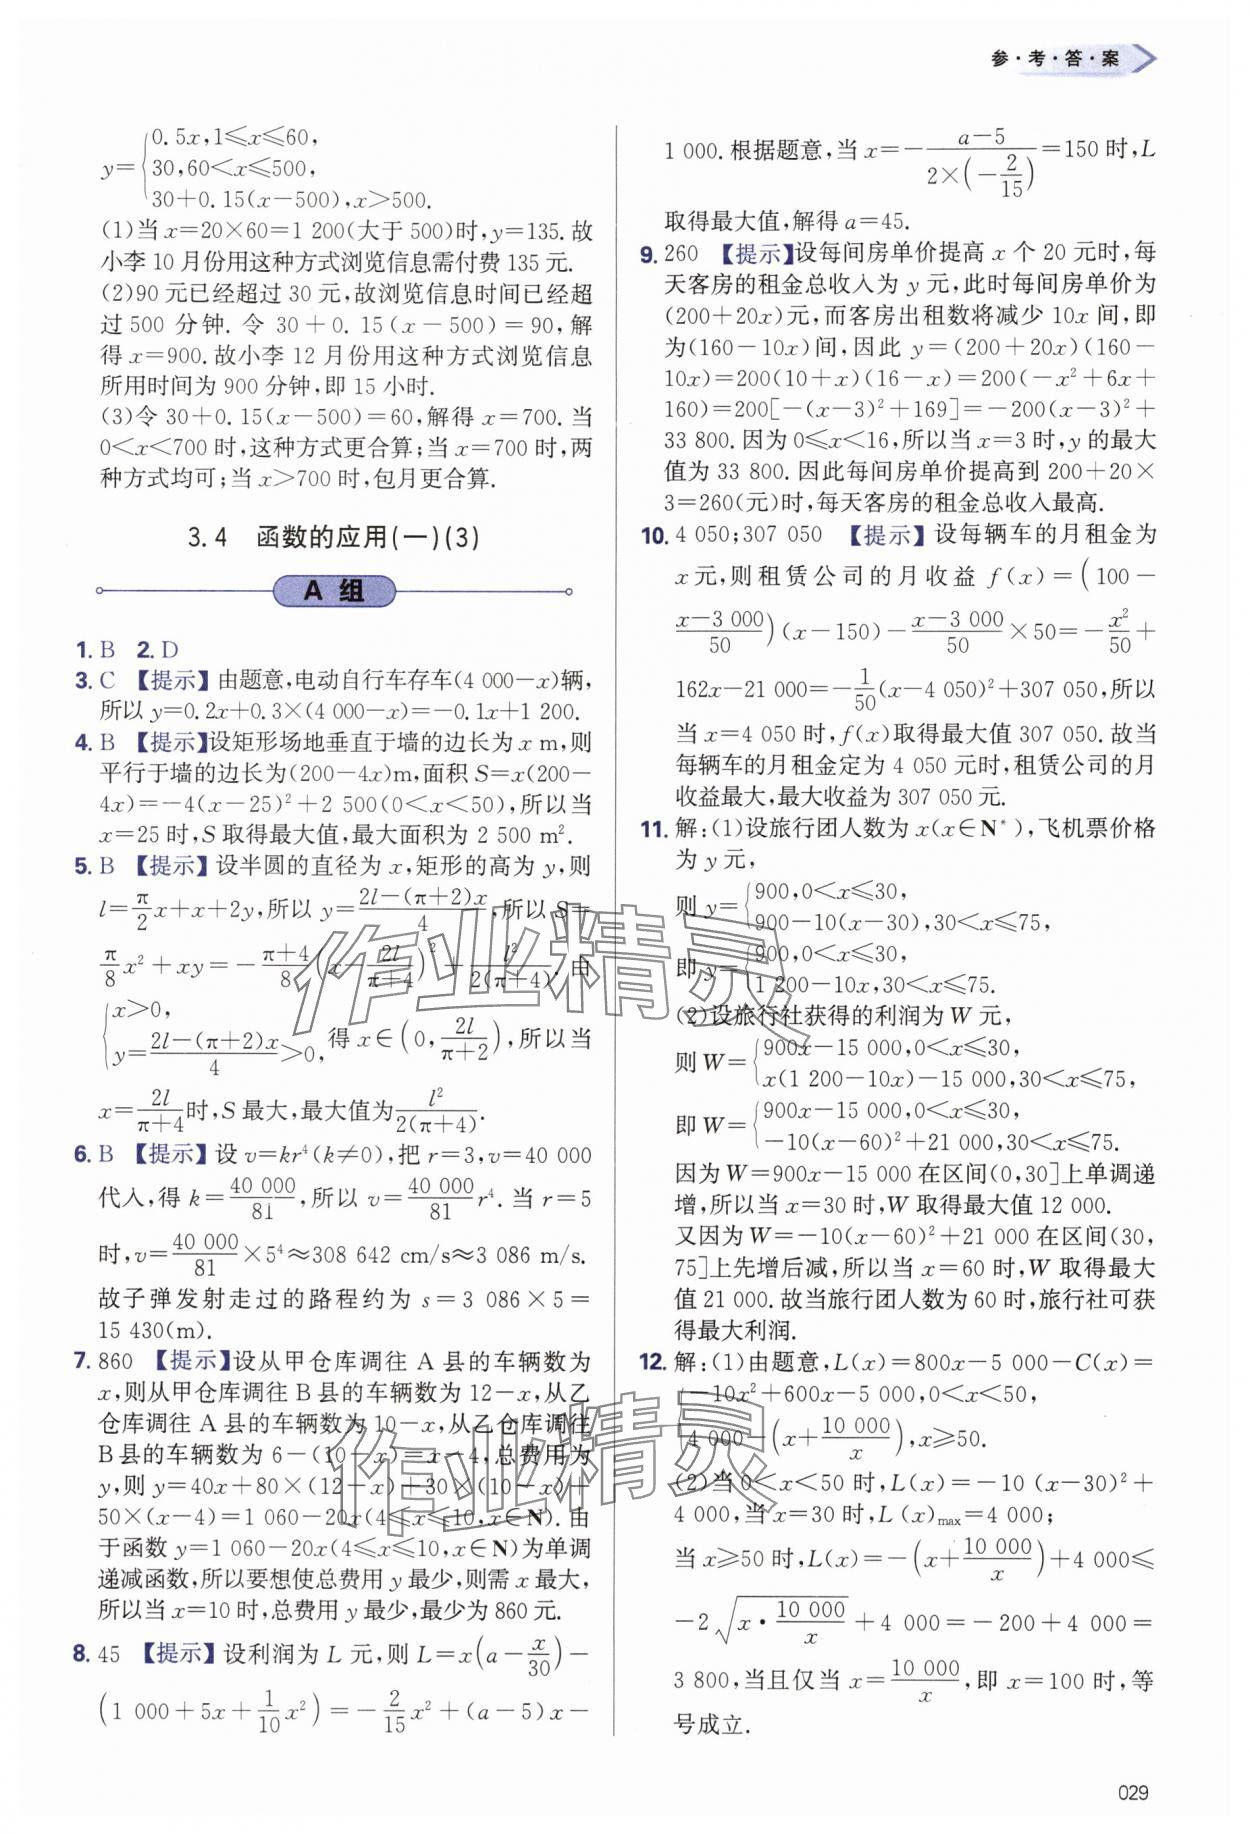 参·考·答·案
y={0.5x,1≤x≤60,
30,60<x≤500,
30+0.15(x-500),x>500.
(1)当 x=20×60=1 200(大于 500)时,y=135.故
小李 10 月份用这种方式浏览信息需付费 135 元.
(2)90 元已经超过 30 元,故浏览信息时间已经超
过 500 分钟.令 30+0.15(x-500)=90,解
得 x=900.故小李 12 月份用这种方式浏览信息
所用时间为 900 分钟,即 15 小时.
(3)令 30+0.15(x-500)=60,解得 x=700.当
0<x<700 时,这种方式更合算;当 x=700 时,两
种方式均可;当 x>700 时,包月更合算.
3.4 函数的应用(一)(3)
A 组
1. B 2. D
3. C 【提示】由题意,电动自行车存车(4 000-x)辆,
所以 y=0.2x+0.3×(4 000-x)=-0.1x+1 200.
4. B 【提示】设矩形场地垂直于墙的边长为 x m,则
平行于墙的边长为(200-4x)m,面积 S=x(200-
4x)=-4(x-25)²+2 500(0<x<50),所以当
x=25 时,S 取得最大值,最大面积为 2 500 m².
5. B 【提示】设半圆的直径为 x,矩形的高为 y,则
l=π/2 x+x+2y,所以 y=(2l-(π+2)x)/4,所以 S=
π/8 x²+xy=-(π+4)/8 (x-2l/(π+4))²+l²/(2(π+4)).由
{x>0,
y=(2l-(π+2)x)/4>0, 得 x∈(0,2l/(π+2)),所以当
x=2l/(π+4)时,S 最大,最大值为 l²/(2(π+4)).
6. B 【提示】设 v=kr⁴(k≠0),把 r=3,v=40 000
代入,得 k=40 000/81,所以 v=40 000/81 r⁴.当 r=5
时,v=40 000/81×5⁴≈308 642 cm/s≈3 086 m/s.
故子弹发射走过的路程约为 s=3 086×5=
15 430(m).
7. 860 【提示】设从甲仓库调往 A 县的车辆数为
x,则从甲仓库调往 B 县的车辆数为 12-x,从乙
仓库调往 A 县的车辆数为 10-x,从乙仓库调往
B 县的车辆数为 6-(10-x)=x-4,总费用为
y,则 y=40x+80×(12-x)+30×(10-x)+
50×(x-4)=1 060-20x(4≤x≤10,x∈N).由
于函数 y=1 060-20x(4≤x≤10,x∈N)为单调
递减函数,所以要想使总费用 y 最少,则需 x 最大,
所以当 x=10 时,总费用 y 最少,最少为 860 元.
8. 45 【提示】设利润为 L 元,则 L=x(a-x/30)-
(1 000+5x+1/10 x²)=-2/15 x²+(a-5)x-
1 000.根据题意,当 x=-(a-5)/(2×(-2/15))=150 时,L
取得最大值,解得 a=45.
9. 260 【提示】设每间房单价提高 x 个 20 元时,每
天客房的租金总收入为 y 元,此时每间房单价为
(200+20x)元,而客房出租数将减少 10x 间,即
为(160-10x)间,因此 y=(200+20x)(160-
10x)=200(10+x)(16-x)=200(-x²+6x+
160)=200[-(x-3)²+169]=-200(x-3)²+
33 800.因为 0≤x<16,所以当 x=3 时,y 的最大
值为 33 800.因此每间房单价提高到 200+20×
3=260(元)时,每天客房的租金总收入最高.
10. 4 050;307 050 【提示】设每辆车的月租金为
x 元,则租赁公司的月收益 f(x)=(100-
(x-3 000)/50)(x-150)-(x-3 000)/50×50=-x²/50+
162x-21 000=-1/50(x-4 050)²+307 050,所以
当 x=4 050 时,f(x)取得最大值 307 050.故当
每辆车的月租金定为 4 050 元时,租赁公司的月
收益最大,最大收益为 307 050 元.
11. 解:(1)设旅行团人数为 x(x∈N*),飞机票价格
为 y 元,
则 y={900,0<x≤30,
900-10(x-30),30<x≤75,
即 y={900,0<x≤30,
1 200-10x,30<x≤75.
(2)设旅行社获得的利润为 W 元,
则 W={900x-15 000,0<x≤30,
x(1 200-10x)-15 000,30<x≤75,
即 W={900x-15 000,0<x≤30,
-10(x-60)²+21 000,30<x≤75.
因为 W=900x-15 000 在区间(0,30]上单调递
增,所以当 x=30 时,W 取得最大值 12 000.
又因为 W=-10(x-60)²+21 000 在区间(30,
75]上先增后减,所以当 x=60 时,W 取得最大
值 21 000.故当旅行团人数为 60 时,旅行社可获
得最大利润.
12. 解:(1)由题意,L(x)=800x-5 000-C(x)=
{-10x²+600x-5 000,0<x<50,
4 000-(x+10 000/x),x≥50.
(2)当 0<x<50 时,L(x)=-10(x-30)²+
4 000,当 x=30 时,L(x)max=4 000;
当 x≥50 时,L(x)=-(x+10 000/x)+4 000≤
-2√(x·10 000/x)+4 000=-200+4 000=
3 800,当且仅当 x=10 000/x,即 x=100 时,等
号成立.
作业精灵
作业精灵
029